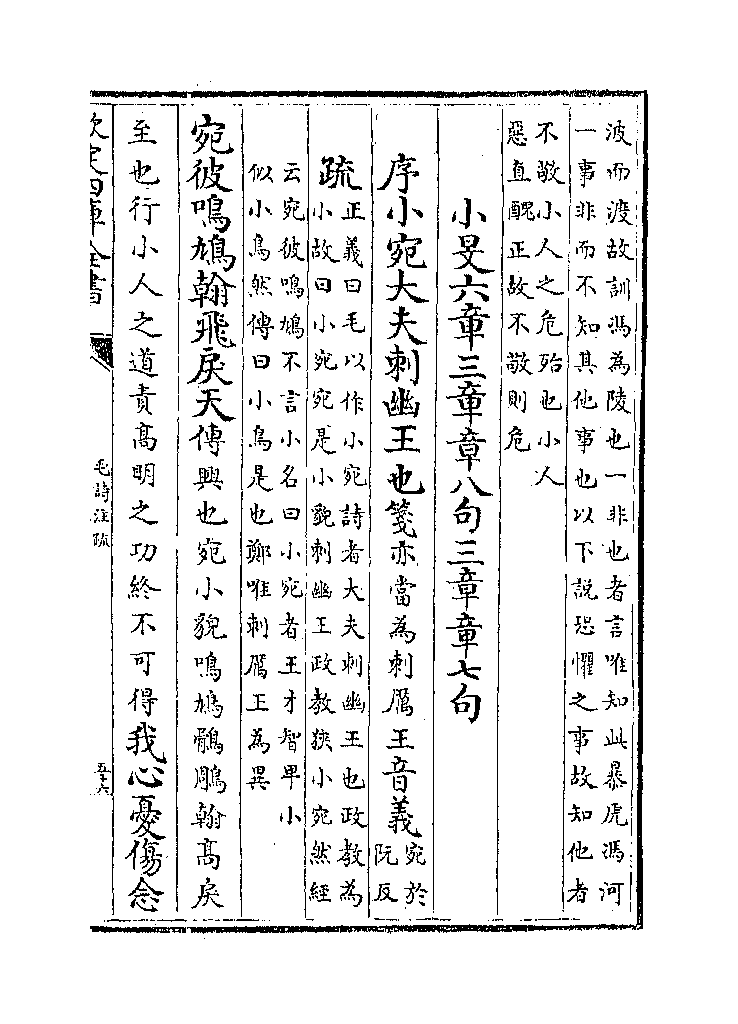 波而渡故訓馮為陵也一非也者言唯知此暴虎馮河
一事非而不知其他事也以下說恐懼之事故知他者
不敬小人之危殆也小人
惡直醜正故不敬則危
小旻六章三章章八句三章章七句
序小宛大夫刺幽王也箋亦當為刺厲王音義宛於
阮反
疏正義曰毛以作小宛詩者大夫刺幽王也政教為
小故曰小宛宛是小貌刺幽王政教狹小宛然經
云宛彼鳴鳩不言小名曰小宛者王才智卑小
似小鳥然傳曰小鳥是也鄭唯刺厲王為異
宛彼鳴鳩翰飛戾天傳興也宛小貌鳴鳩鶻鵰翰髙戾
至也行小人之道責髙明之功終不可得我心憂傷念
欽定四庫全書
毛詩注疏
五十六